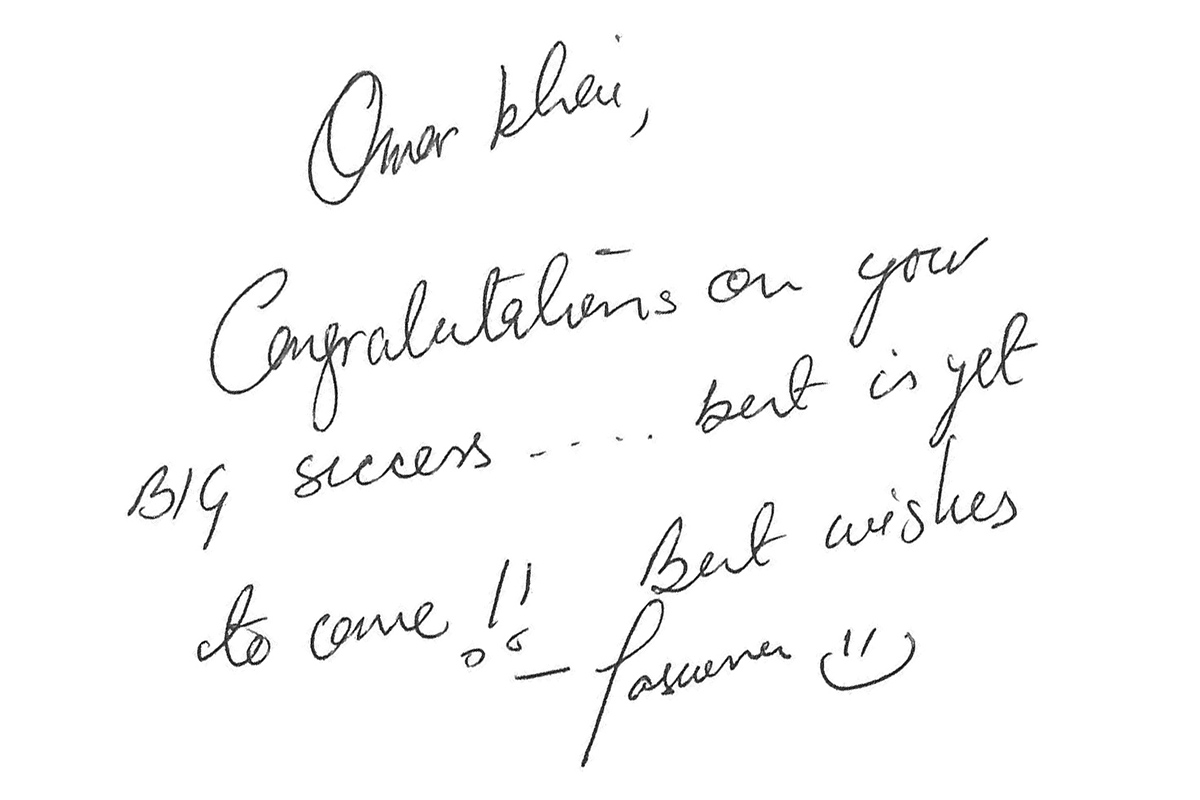 Omer bhai,
Congratulations on your
BIG success..... best is yet
to come !! Best wishes
—